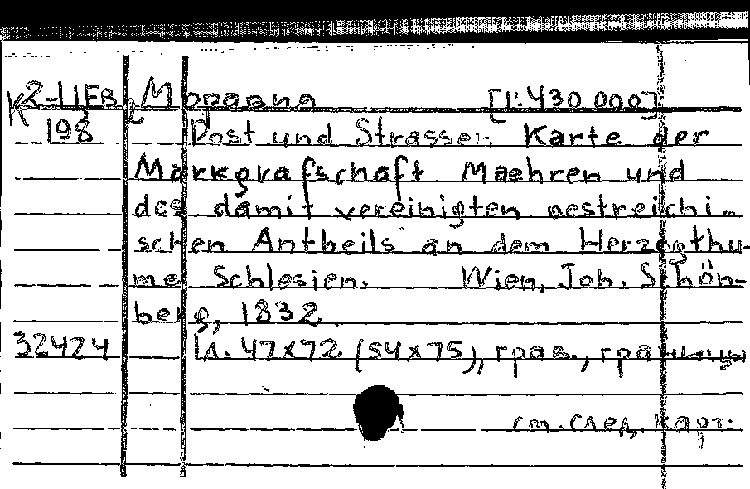 K2-ЦЕВ/2 Моравия [1:430 000]
198 Post und Strassen Karte der
Markgrafschaft Maehren und
des damit vereinigten oestreichi-
schen Antheils an dem Herzogthu-
me Schlesien. Wien, Joh. Schön-
berg, 1832.
32424 1л. 47x72 (54x75), грав., границы
см. след. карт.